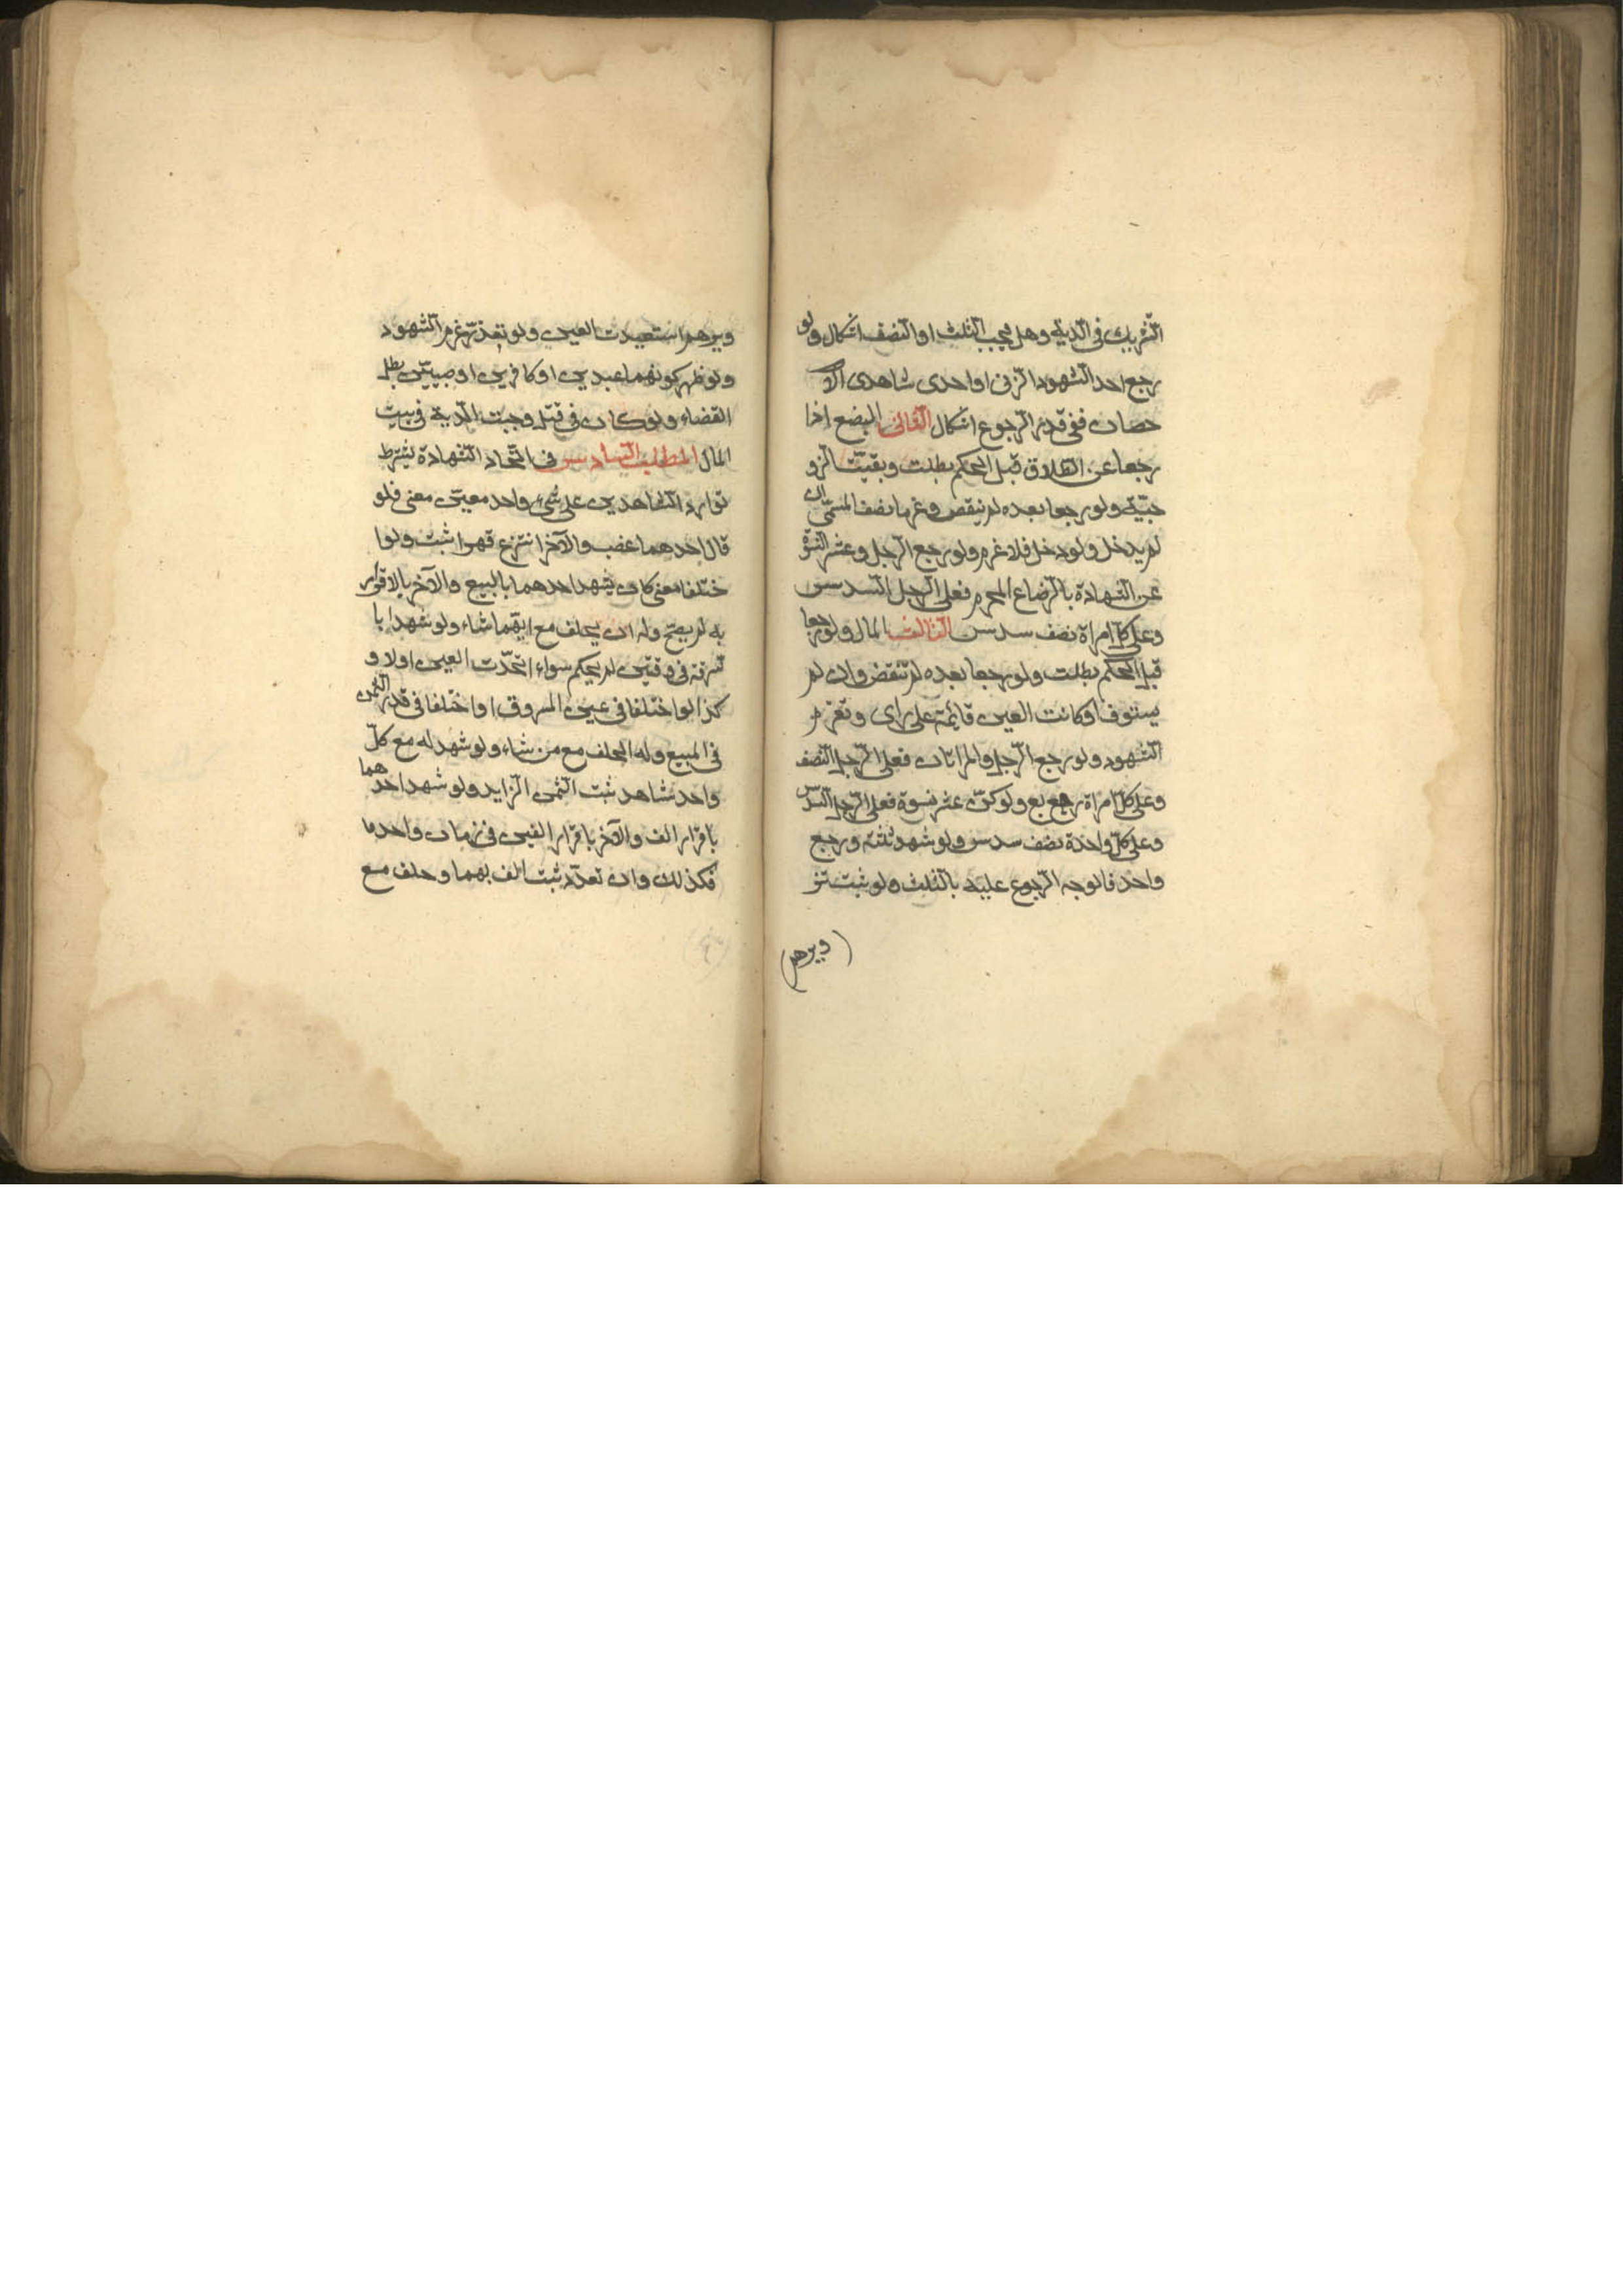 الشريك في الدية وهل يجب الثلث او النصف اشكال ولو
رجع احد الشهود الزنى او احدى شاهدى الا
حصان ففى قدر الرجوع اشكال الثانى البضع اذا
رجعا عن الطلاق قبل الحكم بطلت وبقيت الزو
جيّة ولو رجعا بعده لم ينقض وغرما نصف المسمّى ان
لم يدخل ولو دخل فلا غرم ولو رجع الرجل وعشر النسوة
عن الشهادة بالرضاع المحرم فعلى الرجل السدس
وعلى كل امراة نصف سدس الثالث المال ولو رجعا
قبل الحكم بطلت ولو رجعا بعده لم تنقض وان لم
يستوف او كانت العين قائمة على راى وتغرم
الشهود ولو رجع الرجل والمراتان فعلى الرجل النصف
وعلى كل امراة ربع ولو كنّ عشر نسوة فعلى الرجل السدس
وعلى كل واحدة نصف سدس ولو شهد ثلثة ورجع
واحد فالوجه الرجوع عليه بالثلث ولو ثبت تز
(ويرهم)
ويرهم استعيدت العين ولو تعذر غرم الشهود
ولو ظهر كونهما عبدين او كافرين او صبيّين بطل
القضاء ولو كان فى قتل وجبت الدية فى بيت
المال المطلب السادس فى اتّحاد الشهادة يشترط
توارد الشاهدين على شىء واحد معين معنى فلو
قال احدهما غصب والآخر انتزع قهرا ثبت ولو ا
ختلفا معنى كان يشهد احدهما بالبيع والآخر بالاقرار
به لم يصح وله ان يحلف مع ايّهما شاء ولو شهدا با
لسرقة فى وقتين لم يحكم سواء اتّحدت العين او لا و
كذا لو اختلفا فى عين المسروق او اختلفا فى قدر الثمن
فى المبيع وله الحلف مع من شاء ولو شهد له مع كلّ
واحد شاهد ثبت الثمن الزايد ولو شهد احدهما
باقرار الف والآخر باقرار الفين فى زمان واحد ما
فكذلك وان تعدّد ثبت الف بهما وحلف مع